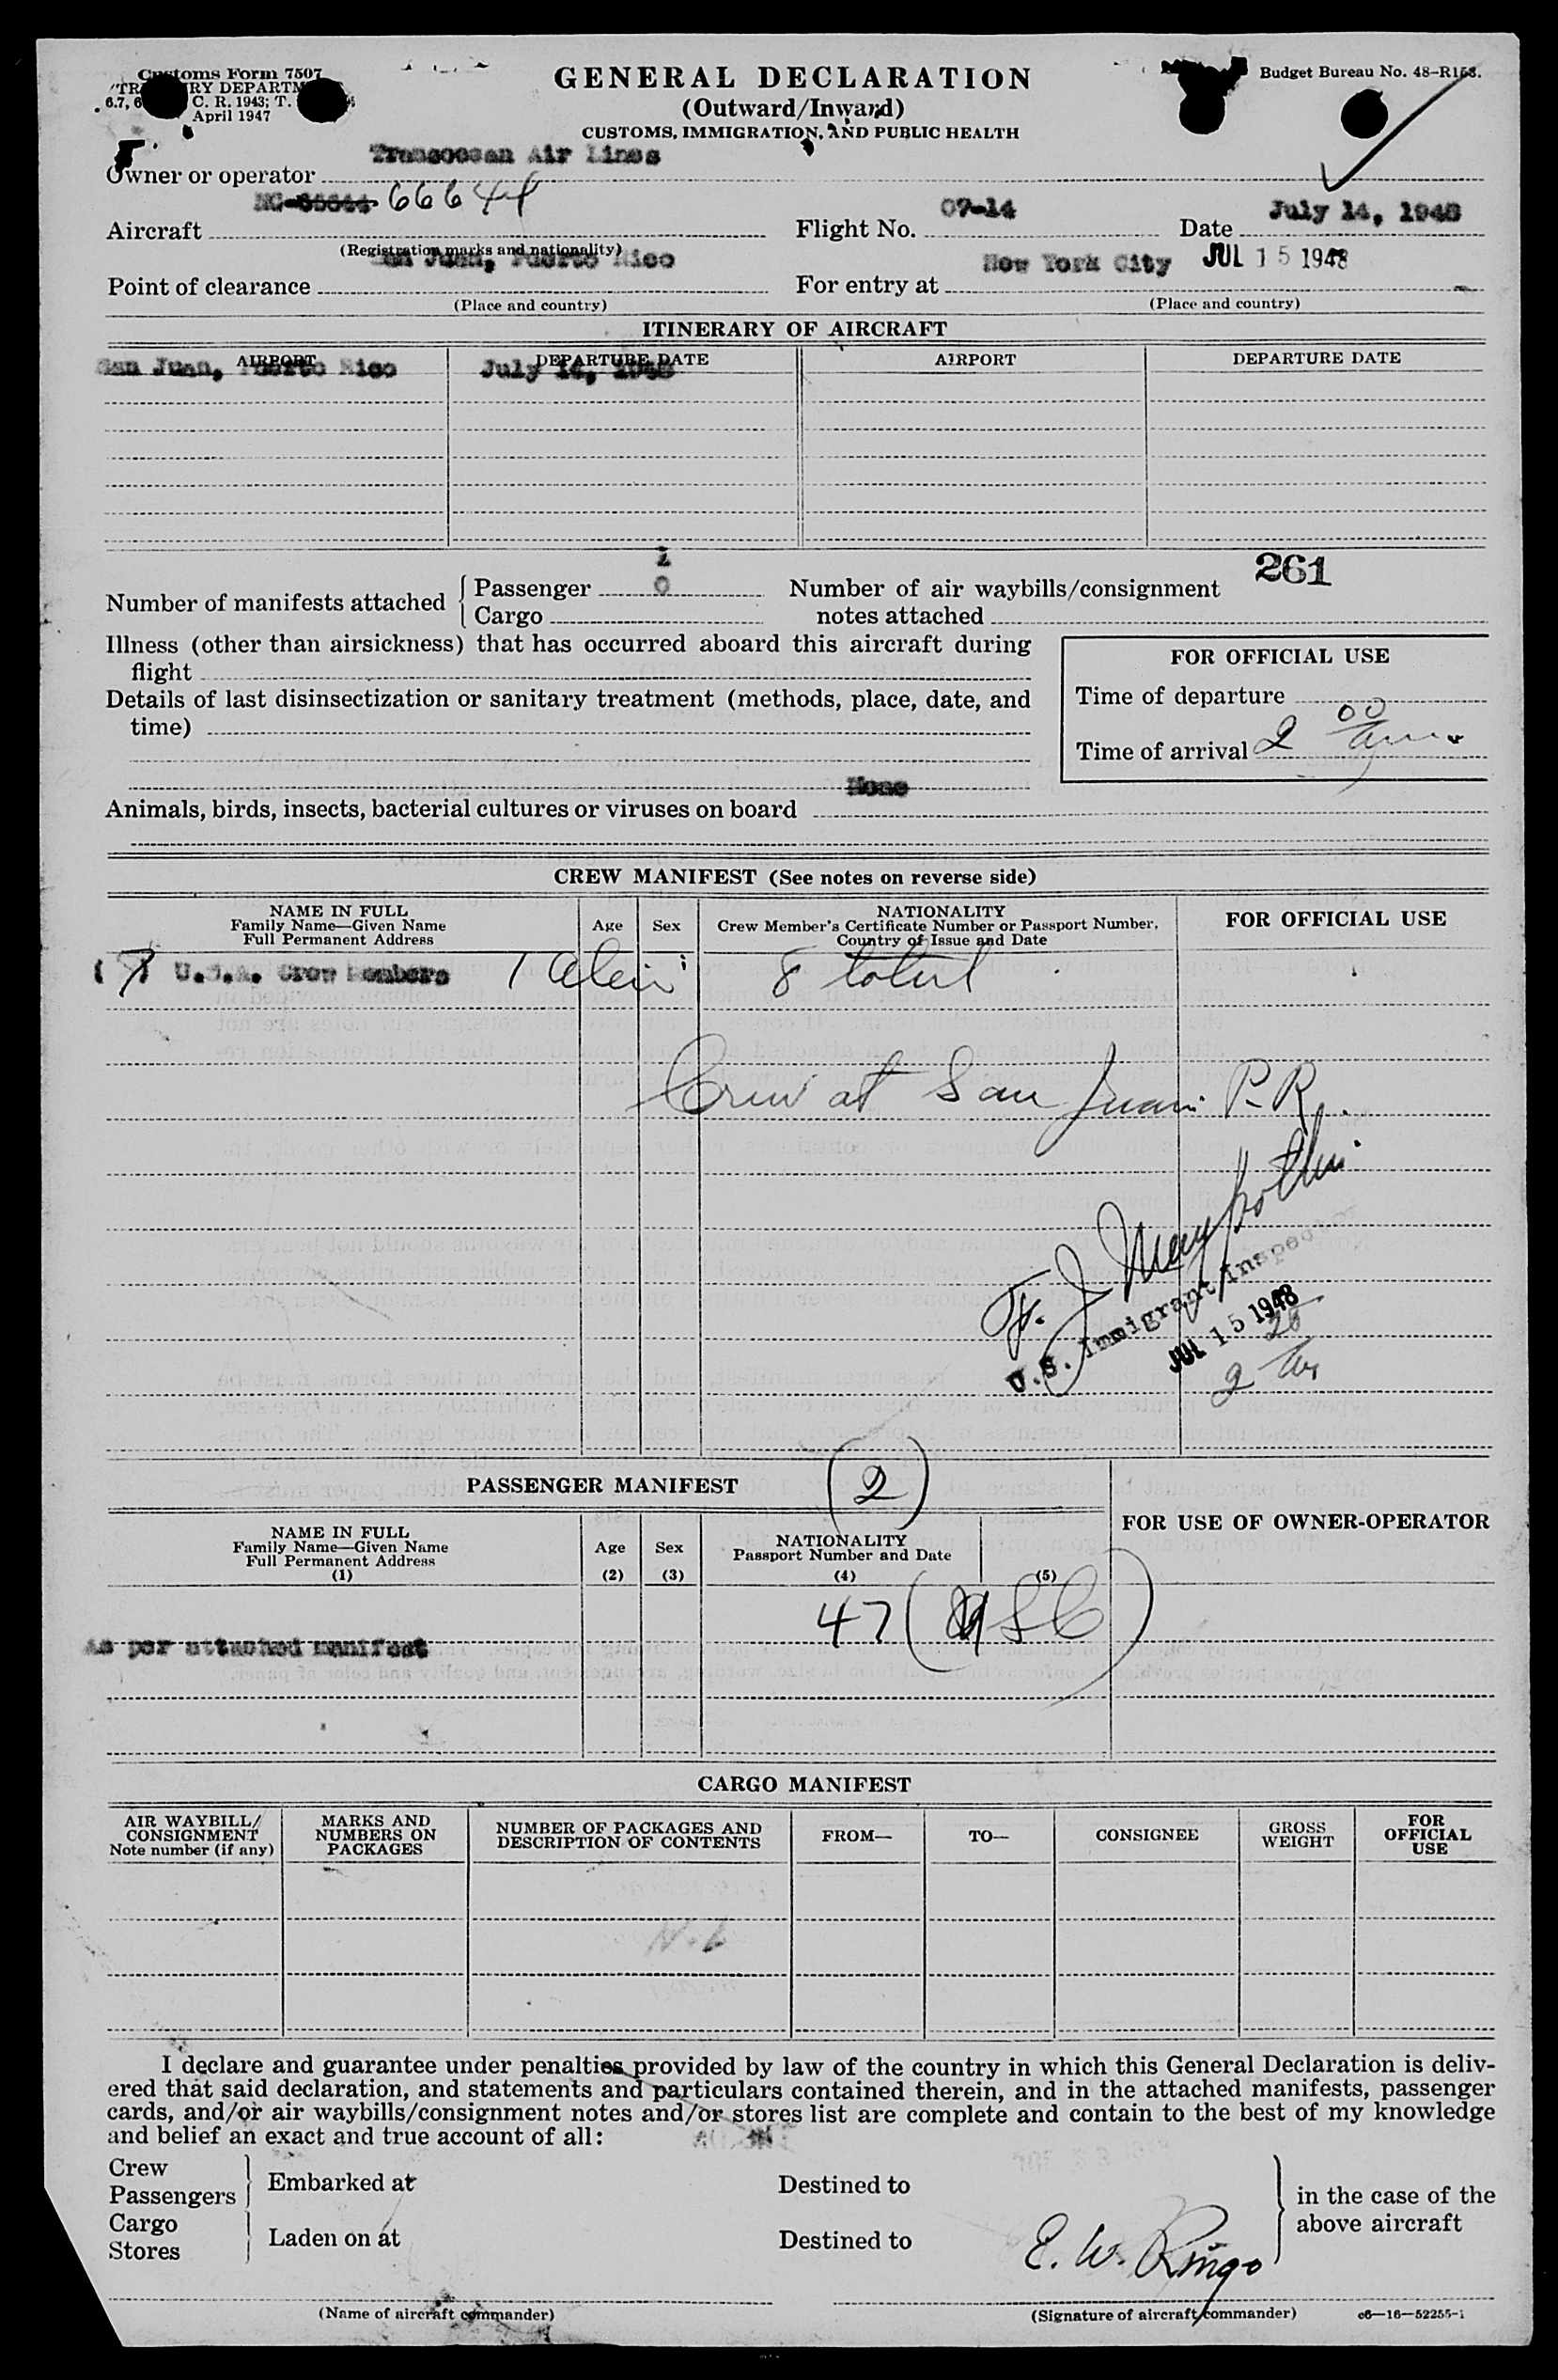 Customs Form 7507
RY DEPARTM
C. R. 1943; T.
April 1947
GENERAL DECLARATION
(Outward/Inward)
CUSTOMS, IMMIGRATION, AND PUBLIC HEALTH
Budget Bureau No. 48-R158.
Owner or operator Transocean Air Lines
Aircraft 66644
(Registration marks and nationality)
Flight No. 09-14
Date July 14, 1948
Point of clearance San Juan, Puerto Rico
(Place and country)
For entry at New York City JUL 15 1948
(Place and country)
ITINERARY OF AIRCRAFT
AIRPORT DEPARTURE DATE AIRPORT DEPARTURE DATE
San Juan, Puerto Rico July 14, 1948
261
Number of manifests attached
Passenger
0
Cargo
Number of air waybills/consignment
notes attached
Illness (other than airsickness) that has occurred aboard this aircraft during
flight
Details of last disinsectization or sanitary treatment (methods, place, date, and
time)
FOR OFFICIAL USE
Time of departure
Time of arrival 2 00 am.
Animals, birds, insects, bacterial cultures or viruses on board None
CREW MANIFEST (See notes on reverse side)
NAME IN FULL
Family Name—Given Name
Full Permanent Address
Age
Sex
NATIONALITY
Crew Member's Certificate Number or Passport Number,
Country of Issue and Date
FOR OFFICIAL USE
(7) U.S.A. Crew Members 1 Alein 8 total
Crew at San Juan P-R.
U.S. Immigrant Inspector
JUL 15 1948
PASSENGER MANIFEST (2)
NAME IN FULL
Family Name—Given Name
Full Permanent Address
(1)
Age
(2)
Sex
(3)
NATIONALITY
Passport Number and Date
(4)
(5)
FOR USE OF OWNER-OPERATOR
47 (USC)
As per attached manifest
CARGO MANIFEST
AIR WAYBILL/
CONSIGNMENT
Note number (if any)
MARKS AND
NUMBERS ON
PACKAGES
NUMBER OF PACKAGES AND
DESCRIPTION OF CONTENTS
FROM—
TO—
CONSIGNEE
GROSS
WEIGHT
FOR
OFFICIAL
USE
I declare and guarantee under penalties provided by law of the country in which this General Declaration is deliv-
ered that said declaration, and statements and particulars contained therein, and in the attached manifests, passenger
cards, and/or air waybills/consignment notes and/or stores list are complete and contain to the best of my knowledge
and belief an exact and true account of all:
Crew
Passengers
Embarked at
Destined to
Cargo
Stores
Laden on at
Destined to
in the case of the
above aircraft
E. W. Ringo
(Name of aircraft commander)
(Signature of aircraft commander)
c6—16—52255-1